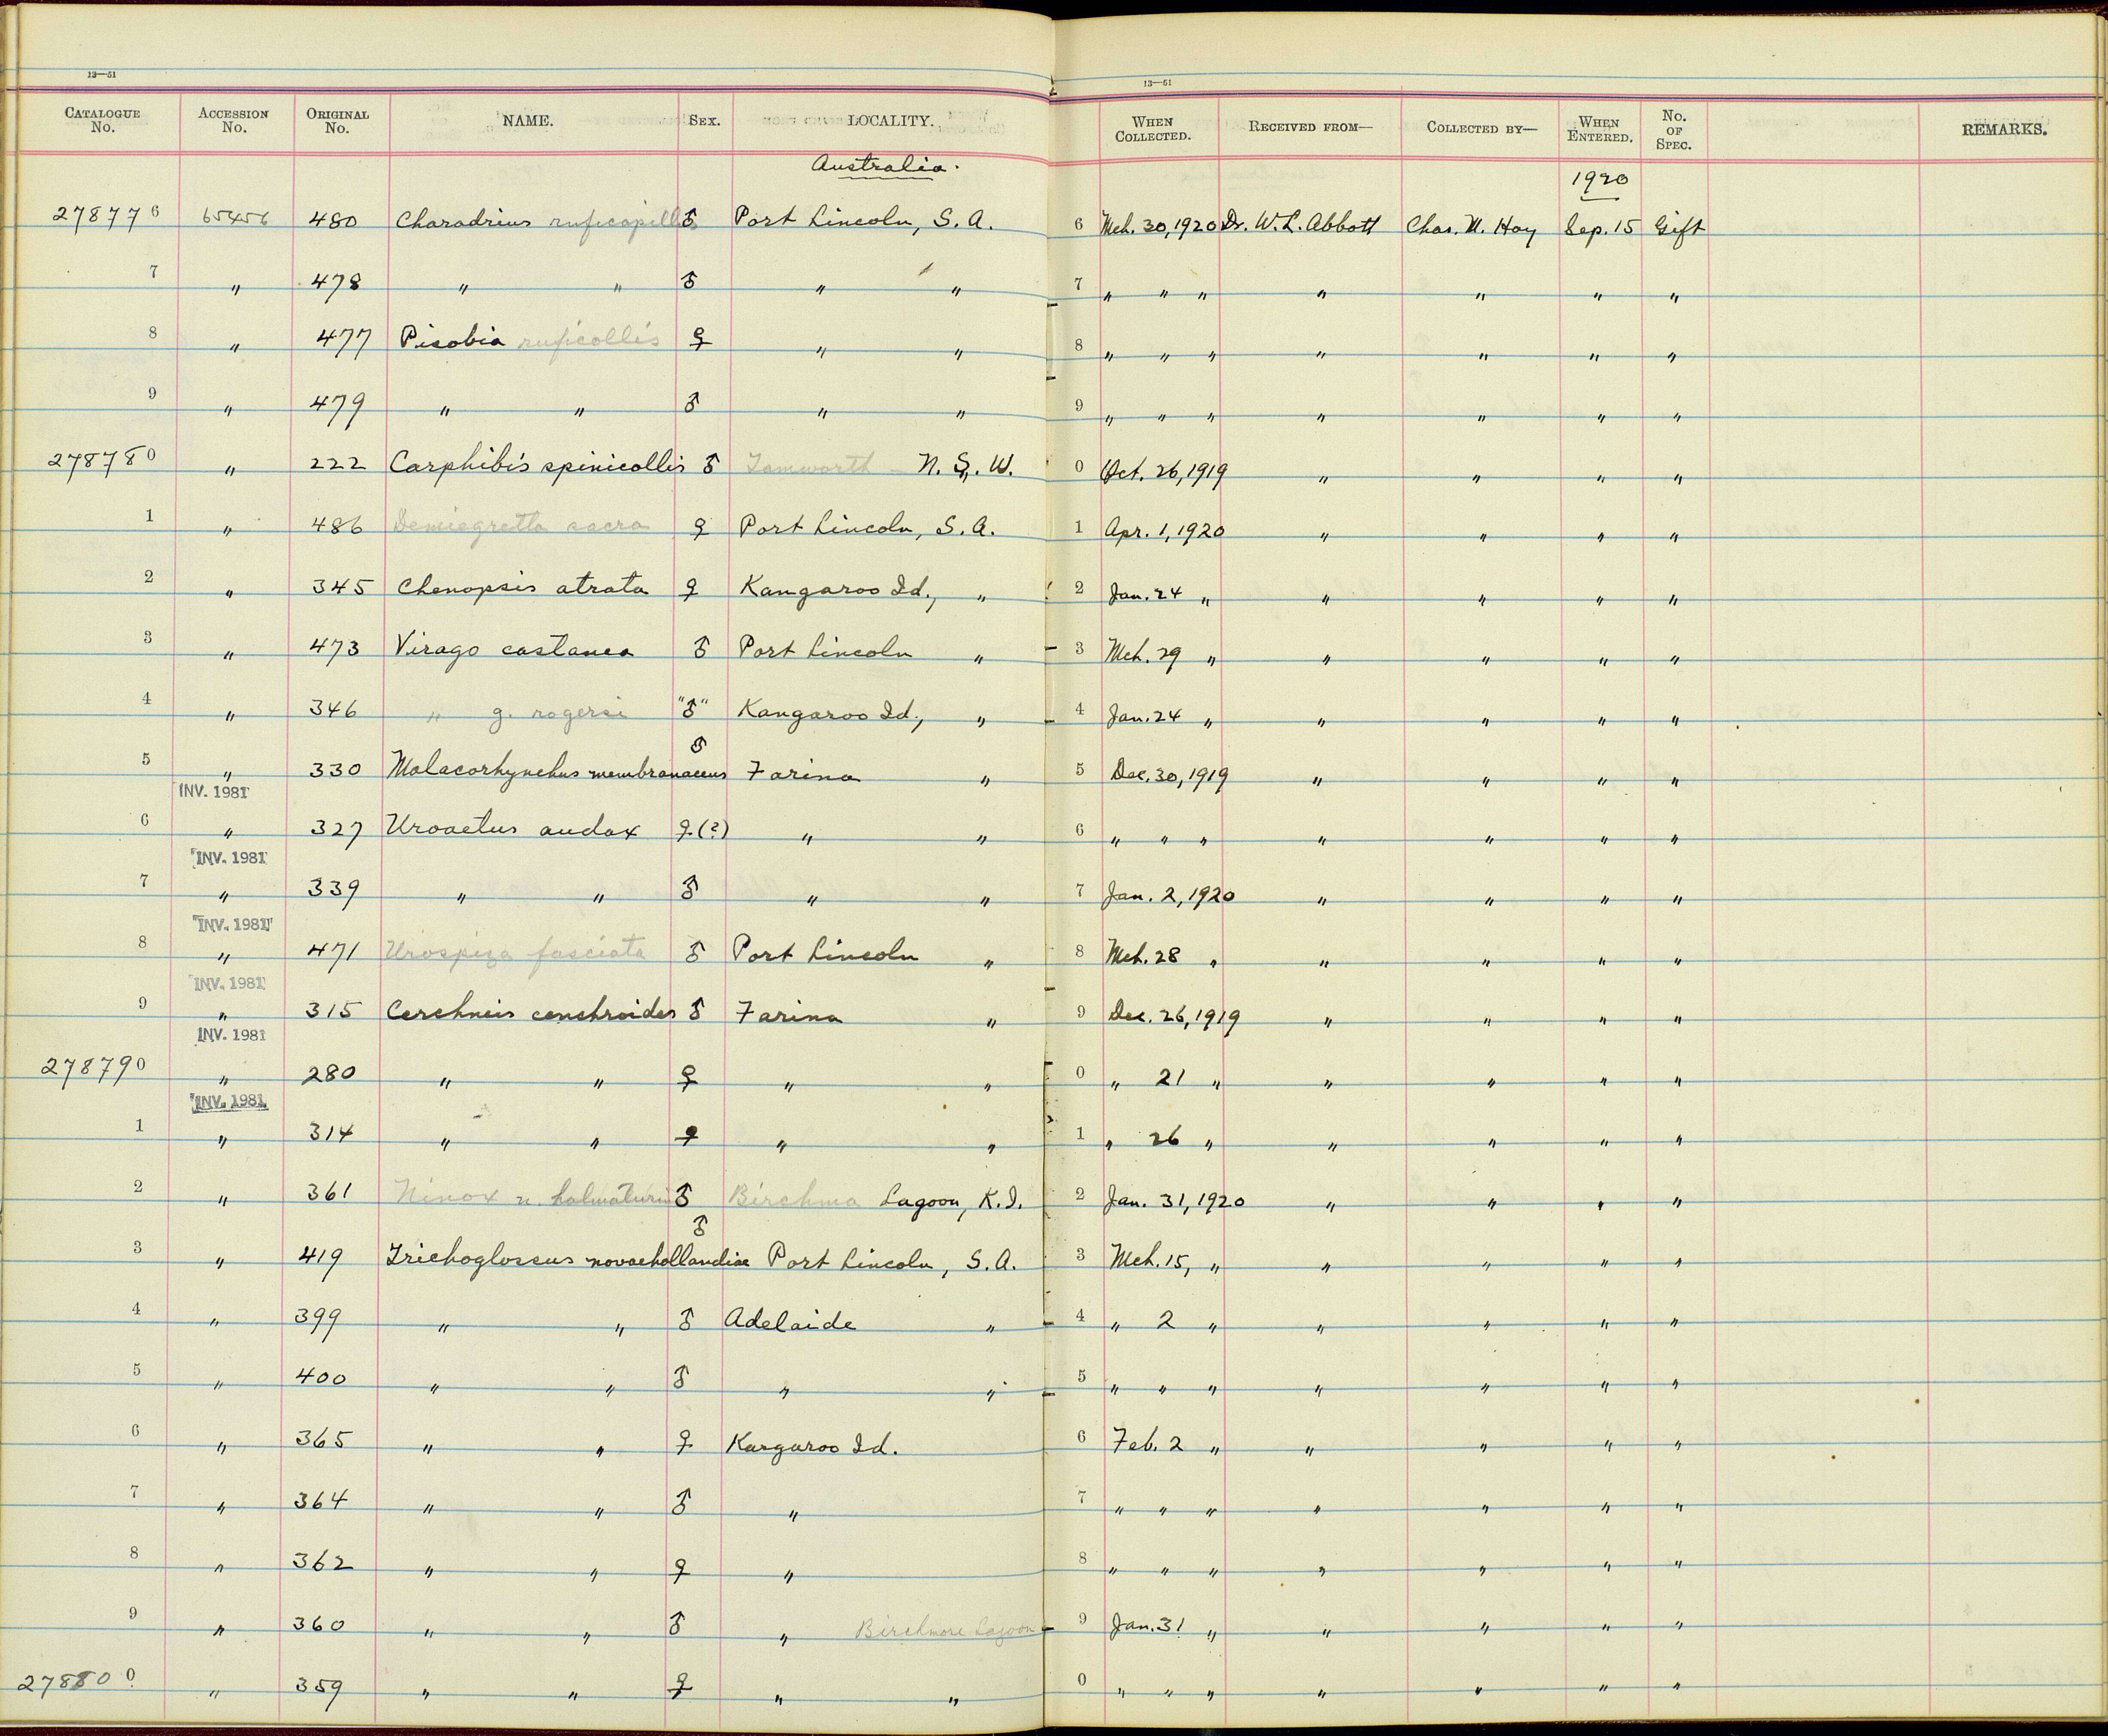 13—51
13—51
CATALOGUE No. ACCESSION No. ORIGINAL No. NAME. SEX. LOCALITY. WHEN COLLECTED. RECEIVED FROM— COLLECTED BY— WHEN ENTERED. No. OF SPEC. REMARKS.
Australia.
1920
278776 65456 480 Charadrius ruficapillus ♂ Port Lincoln, S. A. 6 Mch. 30, 1920 Dr. W. L. Abbott Chas. M. Hoy Sep. 15 Gift
7 " 478 " " ♂ " " 7 " " " " " " "
8 " 477 Pisobia ruficollis ♀ " " 8 " " " " " " "
9 " 479 " " ♂ " " 9 " " " " " " "
278780 " 222 Carphibis spinicollis ♂ Tamworth - N. S. W. 0 Oct. 26, 1919 " " " "
1 " 486 Demiegretta sacra ♀ Port Lincoln, S. A. 1 Apr. 1, 1920 " " " "
2 " 345 Chenopsis atrata ♀ Kangaroo Id., " 2 Jan. 24 " " " " "
3 " 473 Virago castanea ♂ Port Lincoln " 3 Mch. 29 " " " " "
4 " 346 " g. rogersi "♂" Kangaroo Id., " 4 Jan. 24 " " " " "
5 " 330 Malacorhynchus membranaceus ♂ Farina " 5 Dec. 30, 1919 " " " "
INV. 1981
6 " 327 Uroaetus audax ♀(?) " " 6 " " " " " " "
INV. 1981
7 " 339 " " ♂ " " 7 Jan. 2, 1920 " " " "
INV. 1981
8 " 471 Urospiza fasciata ♂ Port Lincoln " 8 Mch. 28 " " " " "
INV. 1981
9 " 315 Cerchneis cenchroides ♂ Farina " 9 Dec. 26, 1919 " " " "
INV. 1981
278790 " 280 " " ♀ " " 0 " 21 " " " " "
INV. 1981
1 " 314 " " ♀ " " 1 " 26 " " " " "
2 " 361 Ninox n. halmaturina ♂ Birchma Lagoon, K. I. 2 Jan. 31, 1920 " " " "
3 " 419 Trichoglossus novaehollandiae ♂ Port Lincoln, S. A. 3 Mch. 15, " " " " "
4 " 399 " " ♂ Adelaide " 4 " 2 " " " " "
5 " 400 " " ♂ " " 5 " " " " " " "
6 " 365 " " ♀ Kangaroo Id. 6 Feb. 2 " " " " "
7 " 364 " " ♂ " 7 " " " " " " "
8 " 362 " " ♀ " 8 " " " " " " "
9 " 360 " " ♂ " Birchmore Lagoon 9 Jan. 31 " " " " "
278800 " 359 " " ♀ " " 0 " " " " " " "